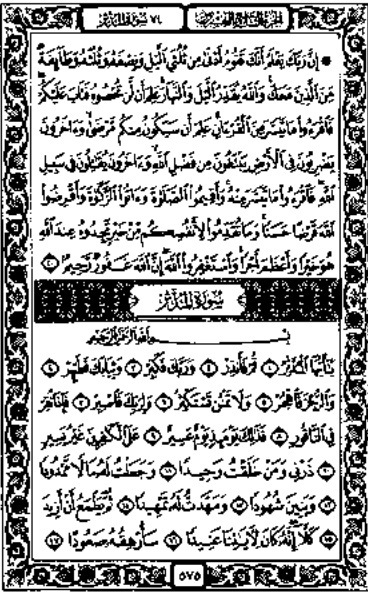 الجزء التاسع والعشرون
٧٤ سورة المدثر
۞ إِنَّ رَبَّكَ يَعْلَمُ أَنَّكَ تَقُومُ أَدْنَىٰ مِن ثُلُثَيِ ٱلَّيْلِ وَنِصْفَهُۥ وَثُلُثَهُۥ وَطَآئِفَةٌ
مِّنَ ٱلَّذِينَ مَعَكَ وَٱللَّهُ يُقَدِّرُ ٱلَّيْلَ وَٱلنَّهَارَ عَلِمَ أَن لَّن تُحْصُوهُ فَتَابَ عَلَيْكُمْ
فَٱقْرَءُوا۟ مَا تَيَسَّرَ مِنَ ٱلْقُرْءَانِ عَلِمَ أَن سَيَكُونُ مِنكُم مَّرْضَىٰ وَءَاخَرُونَ
يَضْرِبُونَ فِى ٱلْأَرْضِ يَبْتَغُونَ مِن فَضْلِ ٱللَّهِ وَءَاخَرُونَ يُقَٰتِلُونَ فِى سَبِيلِ
ٱللَّهِ فَٱقْرَءُوا۟ مَا تَيَسَّرَ مِنْهُ وَأَقِيمُوا۟ ٱلصَّلَوٰةَ وَءَاتُوا۟ ٱلزَّكَوٰةَ وَأَقْرِضُوا۟
ٱللَّهَ قَرْضًا حَسَنًا وَمَا تُقَدِّمُوا۟ لِأَنفُسِكُم مِّنْ خَيْرٍ تَجِدُوهُ عِندَ ٱللَّهِ
هُوَ خَيْرًا وَأَعْظَمَ أَجْرًا وَٱسْتَغْفِرُوا۟ ٱللَّهَ إِنَّ ٱللَّهَ غَفُورٌ رَّحِيمٌ ٢٠
سُورَةُ المُدَّثِّرِ
بِسْمِ ٱللَّهِ ٱلرَّحْمَٰنِ ٱلرَّحِيمِ
يَٰٓأَيُّهَا ٱلْمُدَّثِّرُ ١ قُمْ فَأَنذِرْ ٢ وَرَبَّكَ فَكَبِّرْ ٣ وَثِيَابَكَ فَطَهِّرْ ٤
وَٱلرُّجْزَ فَٱهْجُرْ ٥ وَلَا تَمْنُن تَسْتَكْثِرُ ٦ وَلِرَبِّكَ فَٱصْبِرْ ٧ فَإِذَا نُقِرَ
فِى ٱلنَّاقُورِ ٨ فَذَٰلِكَ يَوْمَئِذٍ يَوْمٌ عَسِيرٌ ٩ عَلَى ٱلْكَٰفِرِينَ غَيْرُ يَسِيرٍ
١٠ ذَرْنِى وَمَنْ خَلَقْتُ وَحِيدًا ١١ وَجَعَلْتُ لَهُۥ مَالًا مَّمْدُودًا
١٢ وَبَنِينَ شُهُودًا ١٣ وَمَهَّدتُّ لَهُۥ تَمْهِيدًا ١٤ ثُمَّ يَطْمَعُ أَنْ أَزِيدَ
١٥ كَلَّآ إِنَّهُۥ كَانَ لِءَايَٰتِنَا عَنِيدًا ١٦ سَأُرْهِقُهُۥ صَعُودًا ١٧
٥٧٥